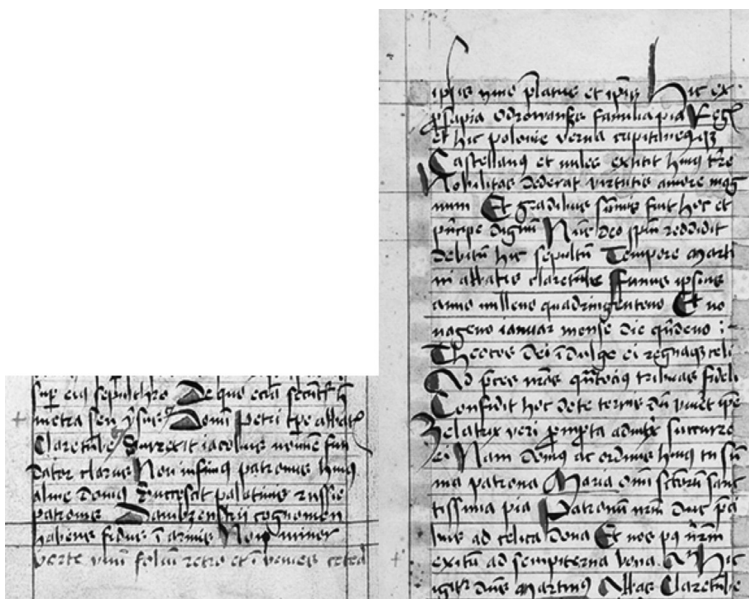 sup eiq sepulchro De que ecia secunt h
metra seu vsus Domi Petri tpe abbat
Claretube Surrexit iacobus nomine fun
dator clarus Non infimus patronus huiq
alme domq Successit palatinus russie
patronus cognomen
habens fidus i armis Non minor
verte vnu foliu retro et i venies cetera
ipsis platus et ipiq Hic ex
psapia odrowansz familia pia Reg
et hic polonie verna capitaneq q3
Castellanq et miles extitit huiq tre
Nobilitas dederat virtutis amore mag
num Et gradibus sumis fuit hoc et
pncipe dignu Nuc deo spm reddidit
debitu hic sepultu Tempore marti
ni abbatis claretube Funus ipsius
anno milleno quadringenteno Et no
nageno ianuar mense die quideno :
Theotos dei idulge ei regnaq3 celi
Ad pces nras qntociq tribuas fideli
Confidit hoc de te ternis du viuet ipe
Zelatrix veri prompta succurre
ei Nam domq ac ordinis huiq tu su
ma patrona Maria omi sctoru sanc
tissima pia Patronum nrm duc pci
bus ad celica dona Et nos pq nrm
exitu ad sempiterna bona. Hic
igitr dns martinq Abbas Claretube